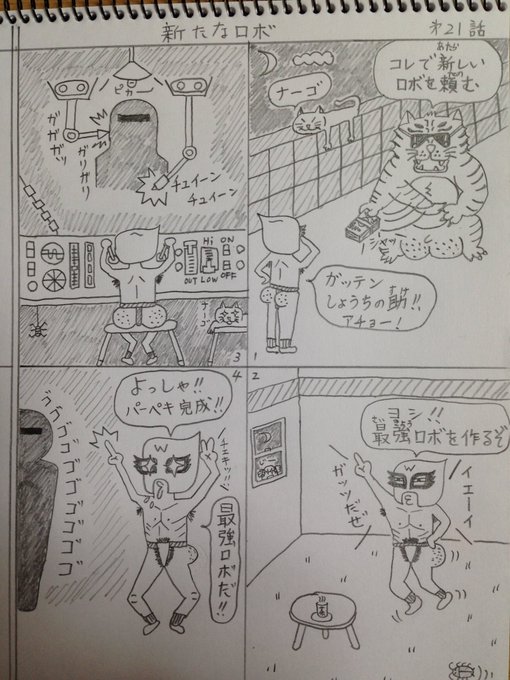 新たなロボ
第21話
あたら
コレで新しい
たの
ロボを頼む
ナーゴ
ジャッ
ガッテン
しょうちの助!!
すけ
アチョー!
1
2
ヨシ!!
さいきょう
最強ロボを作るぞ
イエーイ
ガッツだぜ
W
ピカー
ガガガッ
ガリガリ
チュイーン
チュイーン
Hi
ON
OUT
LOW
OFF
ナーゴ
3
4
よっしゃ!!
パーペキ完成!!
チェキッ!!
W
最強ロボだ!!
ゴゴゴゴゴゴゴゴ